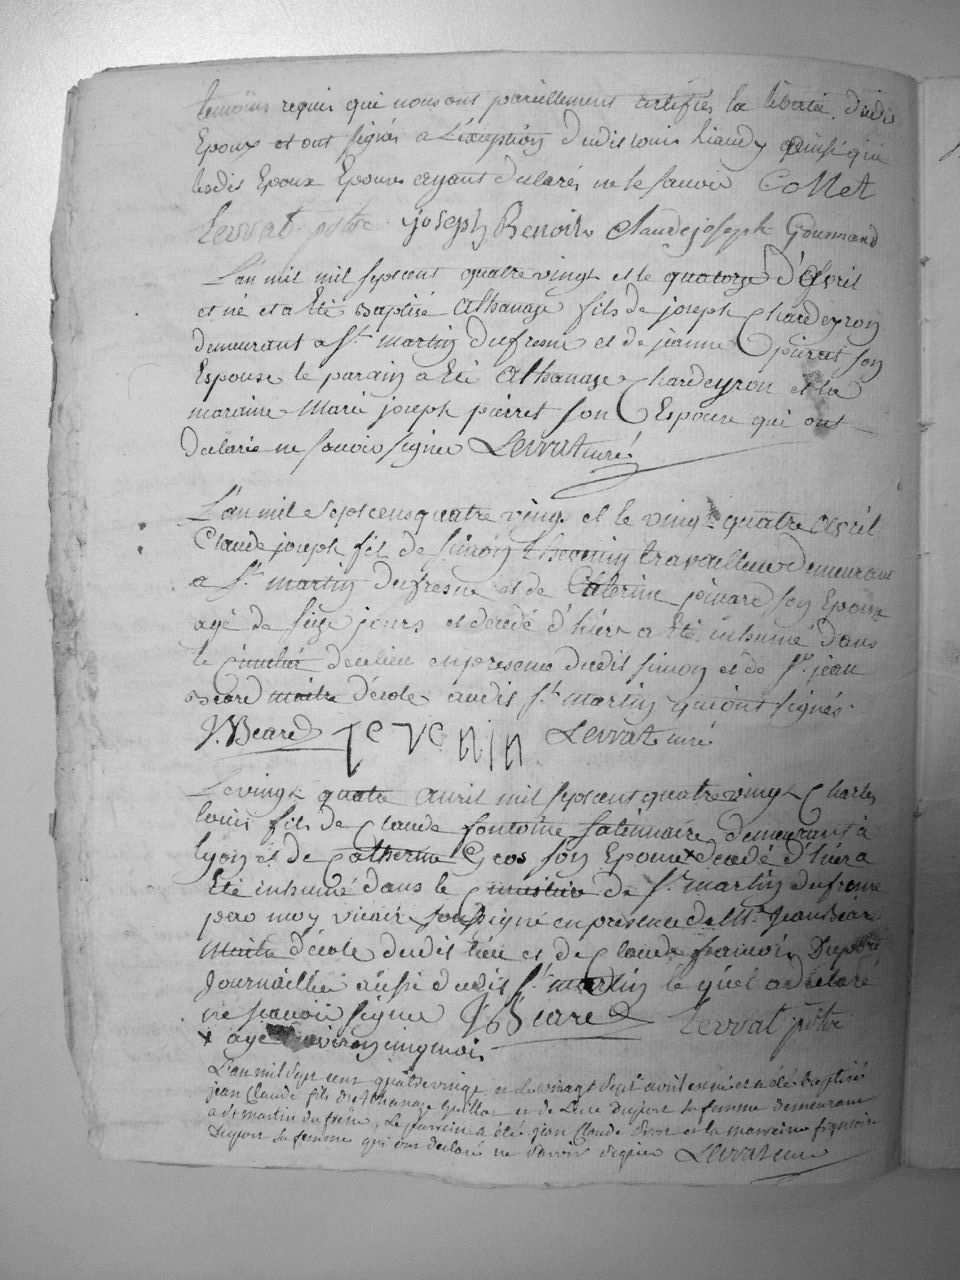 temoins requis qui nous ont pareillement certifiés la liberté dudis
Epoux et ont signés a L'exception dudis louis hiaudy ainsi que
lesdis Epoux Epouse ayant déclarés ne le savoir Collet
Levrat ptre joseph Benoit Claude joseph Gourmand
L'an mil mil sept cent quatre vingt et le quatorze d'Avril
et né et a Eté Baptisé Athanaze fils de joseph Chardeyron
demeurant a St martin dufresne et de jeanne pierret son
Espouse le parain a Eté Athanaze Chardeyron et la
maraine Marie joseph pierret son Espouse qui ont
déclaré ne savoir signer Levrat curé
L'an mil Sept cens quatre vingt et le vingt quatre avril
Claude joseph fil de Simon thevenin travailleur demeurant
a St martin dufresne et de Caterine joinard son Epouse
agé de seize jours et décédé d'hier a Eté inhumé dans
le cimetier de ce lieu en presence dudis simon et de Sr jean
Beard maitre d'école audis St martin qui ont signés
J. Beard tevenin Levrat curé
Le vingt quatre avril mil sept cent quatre vingt Charles
louis fils de Claude fontaine demeurant à
lyon et de Catherine Gros son Epouse x décédé d'hier a
Eté inhumé dans le cimetière de St martin dufresne
par moy vicair soussigné en presence de Mr Jean Bear
Maitre d'école dudis lieu et de Claude francois Duport
Journaillier aussi dudis St martin le quel a déclaré
ne scavoir signer J Beard Levrat ptre
x agé d'environ cinq mois
L'an mil sept cent quatre vingt et le vingt avril est né et a été Baptisé
jean Claude fils d'Athanaze et de Duport sa femme demeurant
a St martin du frêne, Le parrein a été jean Claude et la marreine françoise
Duport sa femme qui ont declaré ne savoir signer Levrat curé